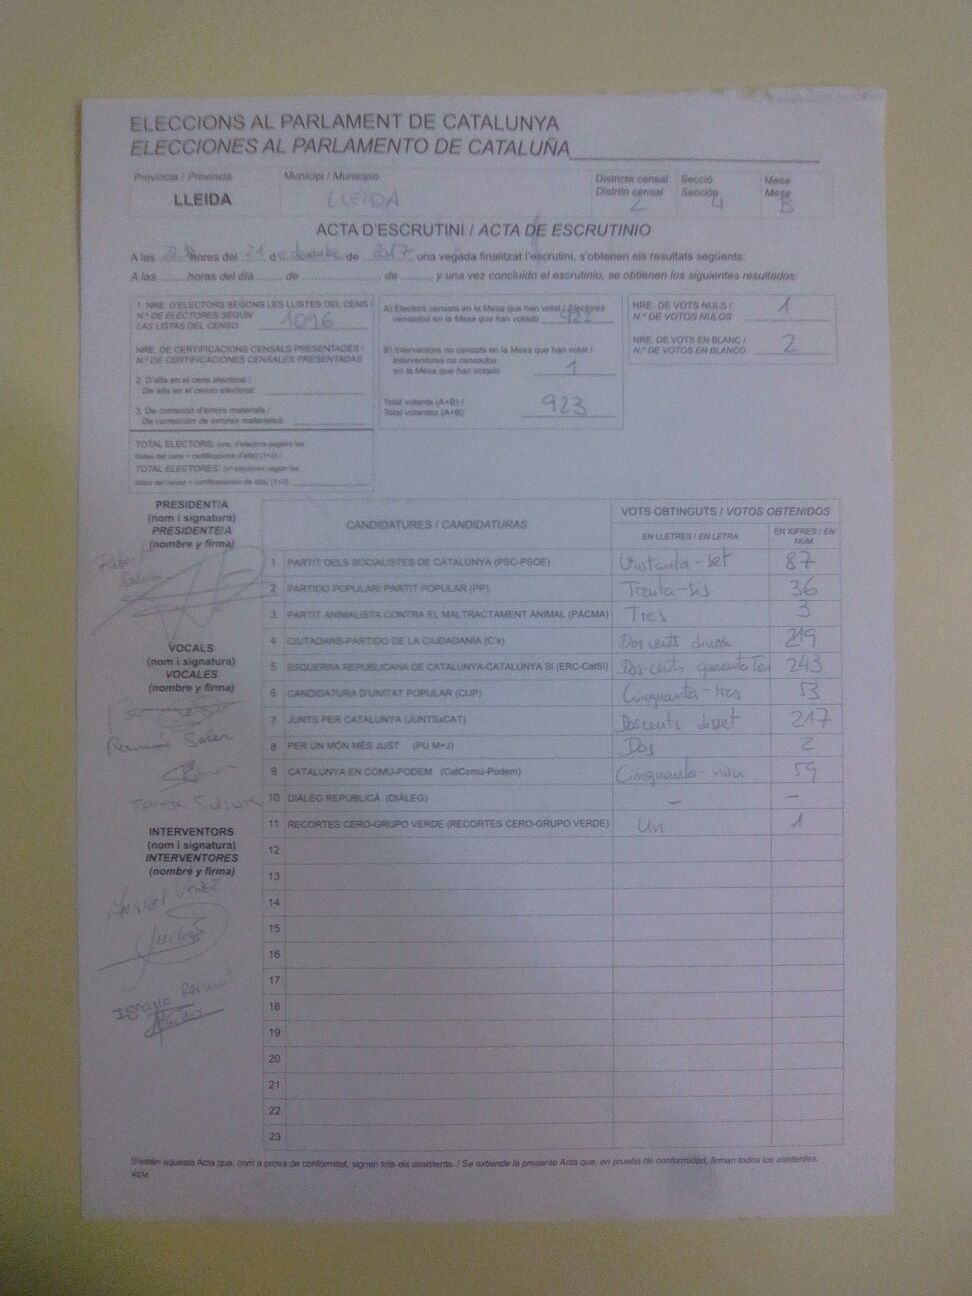 ELECCIONS AL PARLAMENT DE CATALUNYA
ELECCIONES AL PARLAMENTO DE CATALUÑA
Província / Provincia Municipi / Municipio Districte censal Secció Mesa
Distrito censal Sección Mesa
LLEIDA LLEIDA 2 4 B
ACTA D'ESCRUTINI / ACTA DE ESCRUTINIO
A les hores del 21 de 2017, una vegada finalitzat l'escrutini, s'obtenen els resultats següents:
A las horas del día de de y una vez concluido el escrutinio, se obtienen los siguientes resultados:
1. NRE. D'ELECTORS SEGONS LES LLISTES DEL CENS /
N.º DE ELECTORES SEGÚN
LAS LISTAS DEL CENSO 1096
NRE. DE CERTIFICACIONS CENSALS PRESENTADES /
N.º DE CERTIFICACIONES CENSALES PRESENTADAS
2. D'alta en el cens electoral /
De alta en el censo electoral:
3. De correcció d'errors materials /
De corrección de errores materiales:
TOTAL ELECTORS: (nre. d'electors segons les
llistes del cens + certificacions d'alta) (1+2) /
TOTAL ELECTORES: (nº electores según las
listas del censo + certificaciones de alta) (1+2)
A) Electors censats en la Mesa que han votat / Electores
censados en la Mesa que han votado 922
B) Interventors no censats en la Mesa que han votat /
Interventores no censados
en la Mesa que han votado 1
Total votants (A+B) /
Total votantes (A+B) 923
NRE. DE VOTS NULS /
N.º DE VOTOS NULOS 1
NRE. DE VOTS EN BLANC /
N.º DE VOTOS EN BLANCO 2
PRESIDENT/A
(nom i signatura)
PRESIDENTE/A
(nombre y firma)
VOCALS
(nom i signatura)
VOCALES
(nombre y firma)
Ramón Soler
Teresa
INTERVENTORS
(nom i signatura)
INTERVENTORES
(nombre y firma)
Ignacio
CANDIDATURES / CANDIDATURAS VOTS OBTINGUTS / VOTOS OBTENIDOS
EN LLETRES / EN LETRA EN XIFRES / EN NÚM.
1 PARTIT DELS SOCIALISTES DE CATALUNYA (PSC-PSOE) Vuitanta-set 87
2 PARTIDO POPULAR/ PARTIT POPULAR (PP) Trenta-sis 36
3 PARTIT ANIMALISTA CONTRA EL MALTRACTAMENT ANIMAL (PACMA) Tres 3
4 CIUTADANS-PARTIDO DE LA CIUDADANÍA (C's) Dos cents dinou 219
5 ESQUERRA REPUBLICANA DE CATALUNYA-CATALUNYA SÍ (ERC-CatSí) Dos-cents quaranta 243
6 CANDIDATURA D'UNITAT POPULAR (CUP) Cinquanta-tres 53
7 JUNTS PER CATALUNYA (JUNTSxCAT) Doscents disset 217
8 PER UN MÓN MÉS JUST (PU M+J) Dos 2
9 CATALUNYA EN COMÚ-PODEM (CatComú-Podem) Cinquanta-nou 59
10 DIÀLEG REPUBLICÀ (DIÀLEG) - -
11 RECORTES CERO-GRUPO VERDE (RECORTES CERO-GRUPO VERDE) Un 1
12
13
14
15
16
17
18
19
20
21
22
23
S'estén aquesta Acta que, com a prova de conformitat, signen tots els assistents. / Se extiende la presente Acta que, en prueba de conformidad, firman todos los asistentes.